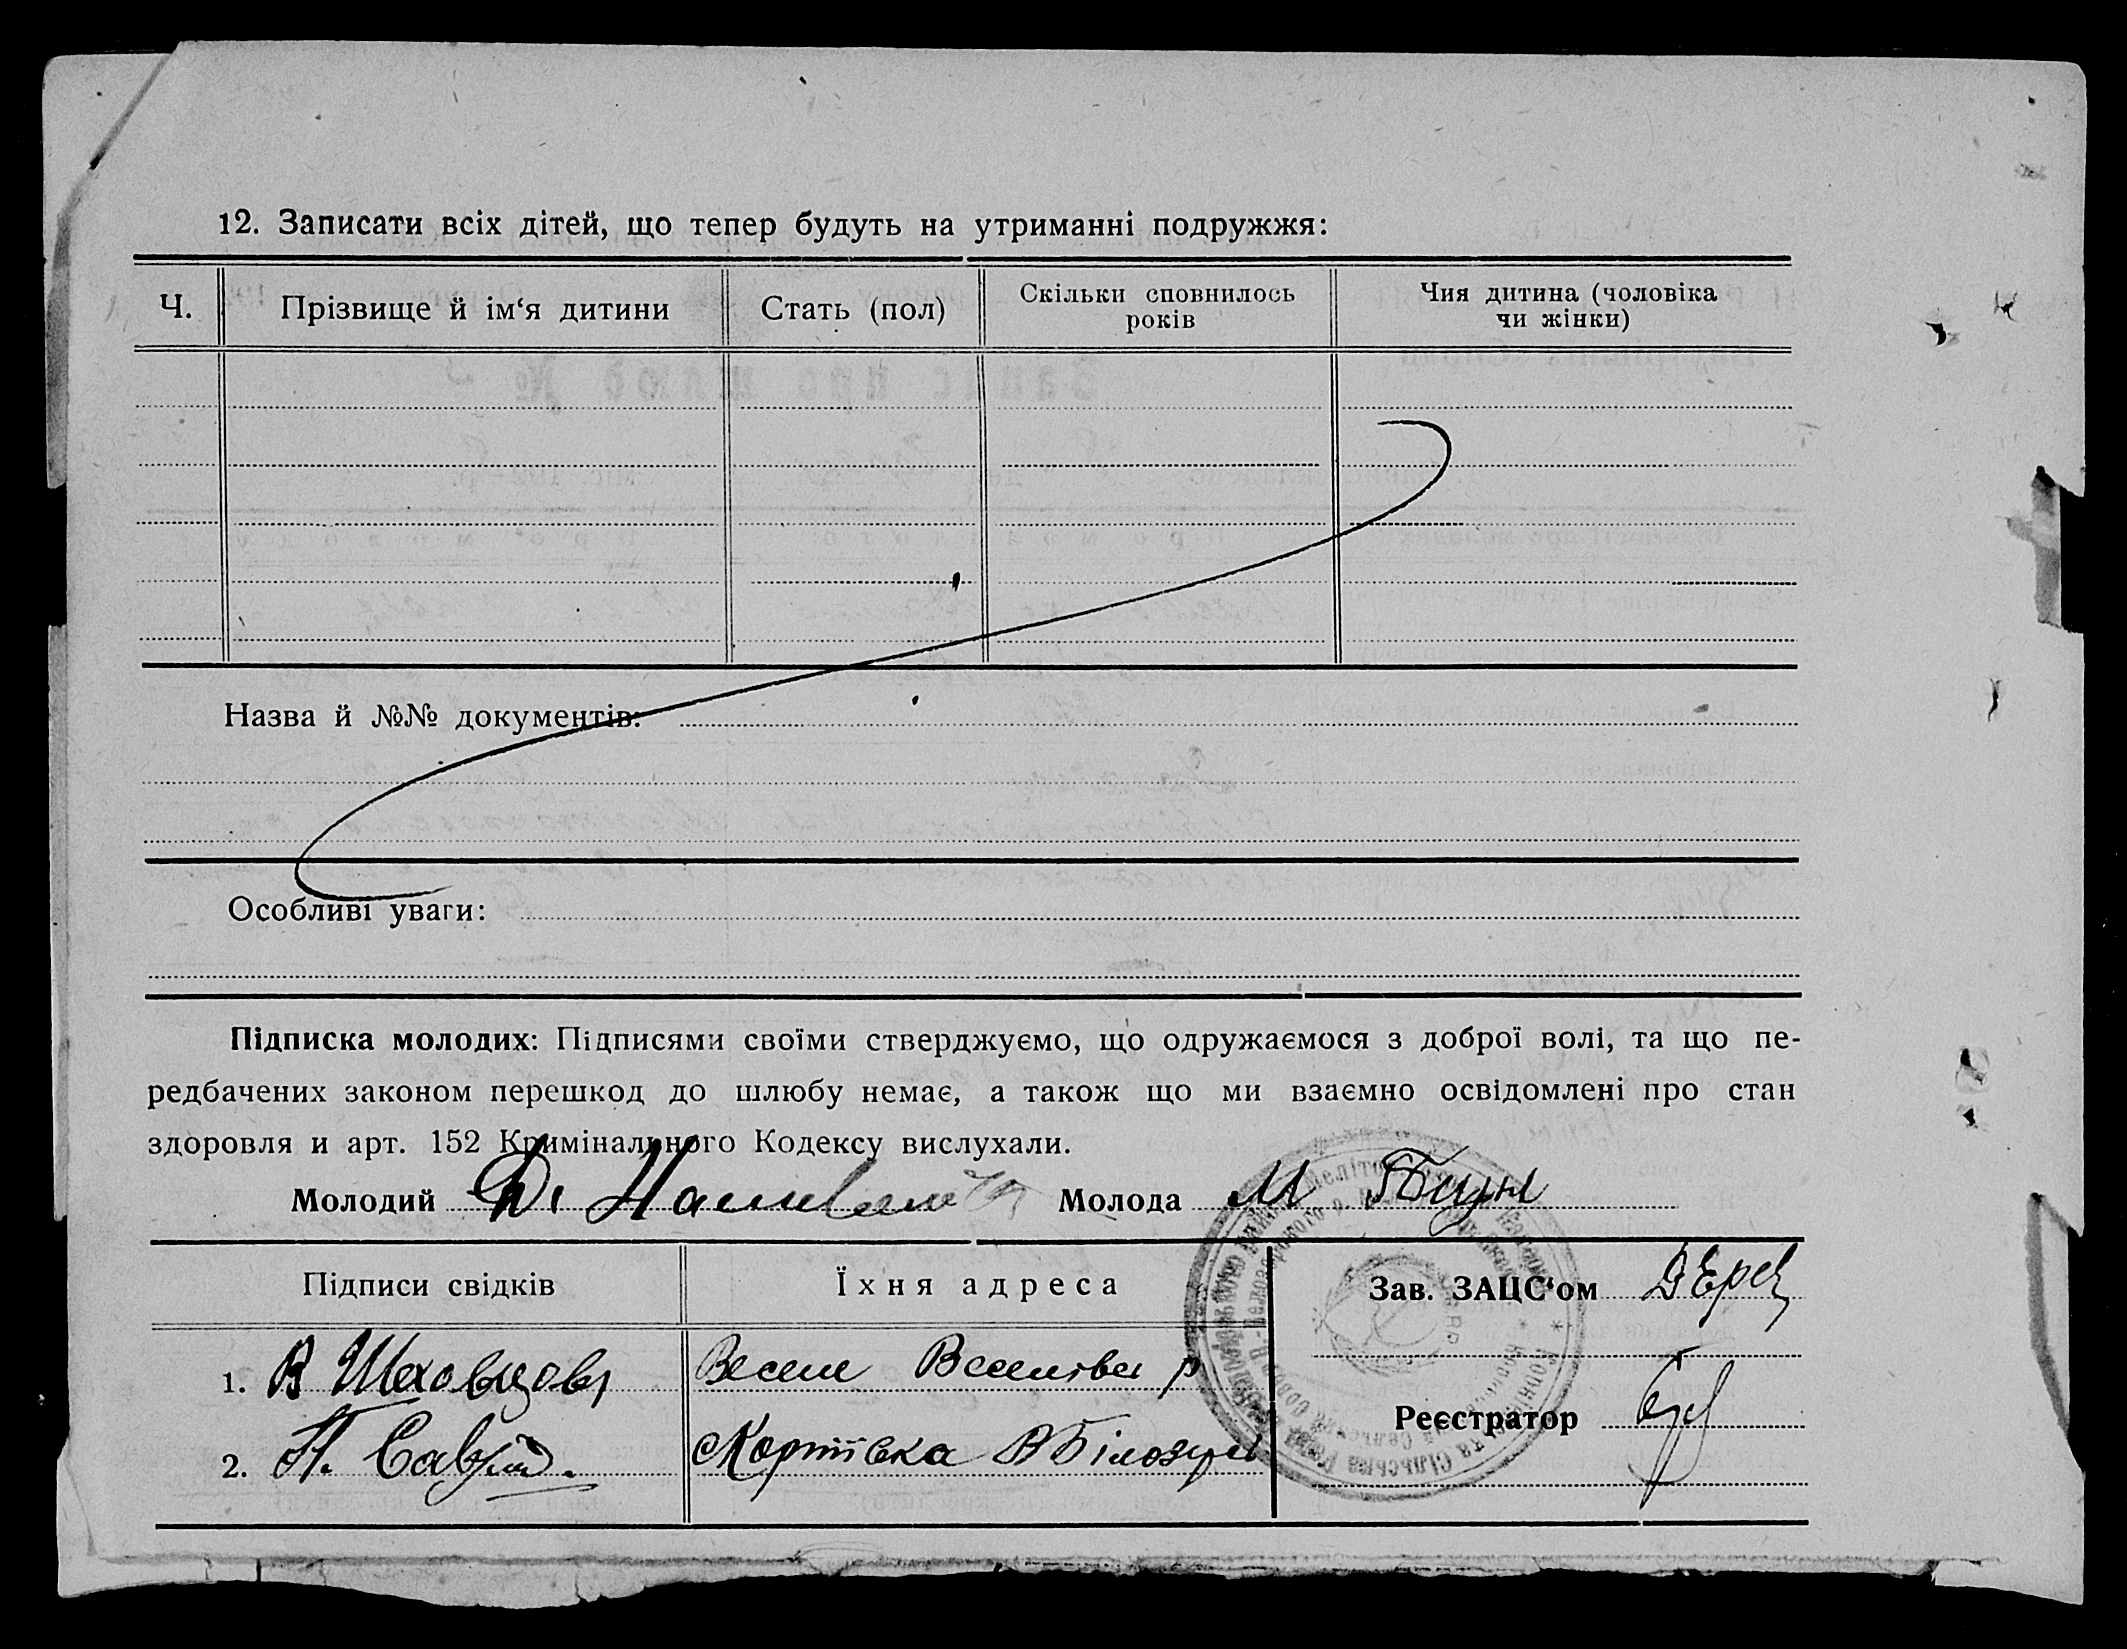 12. Записати всіх дітей, що тепер будуть на утриманні подружжя:
Ч.
Прізвище й ім‘я дитини
Стать (пол)
Скільки сповнилось
років
Чия дитина (чоловіка
чи жінки)
Назва й №№ документів:
Особливі уваги:
Підписка молодих: Підписями своїми стверджуємо, що одружаємося з доброї волі, та що пе-
редбачених законом перешкод до шлюбу немає, а також що ми взаємно освідомлені про стан
здоровля и арт. 152 Кримінального Кодексу вислухали.
Молодий
Молода М
Підписи свідків
Їхня адреса
Зав. ЗАЦС‘ом
1. В Шаховцов
Веселе р
2.
В Білозер
Реєстратор